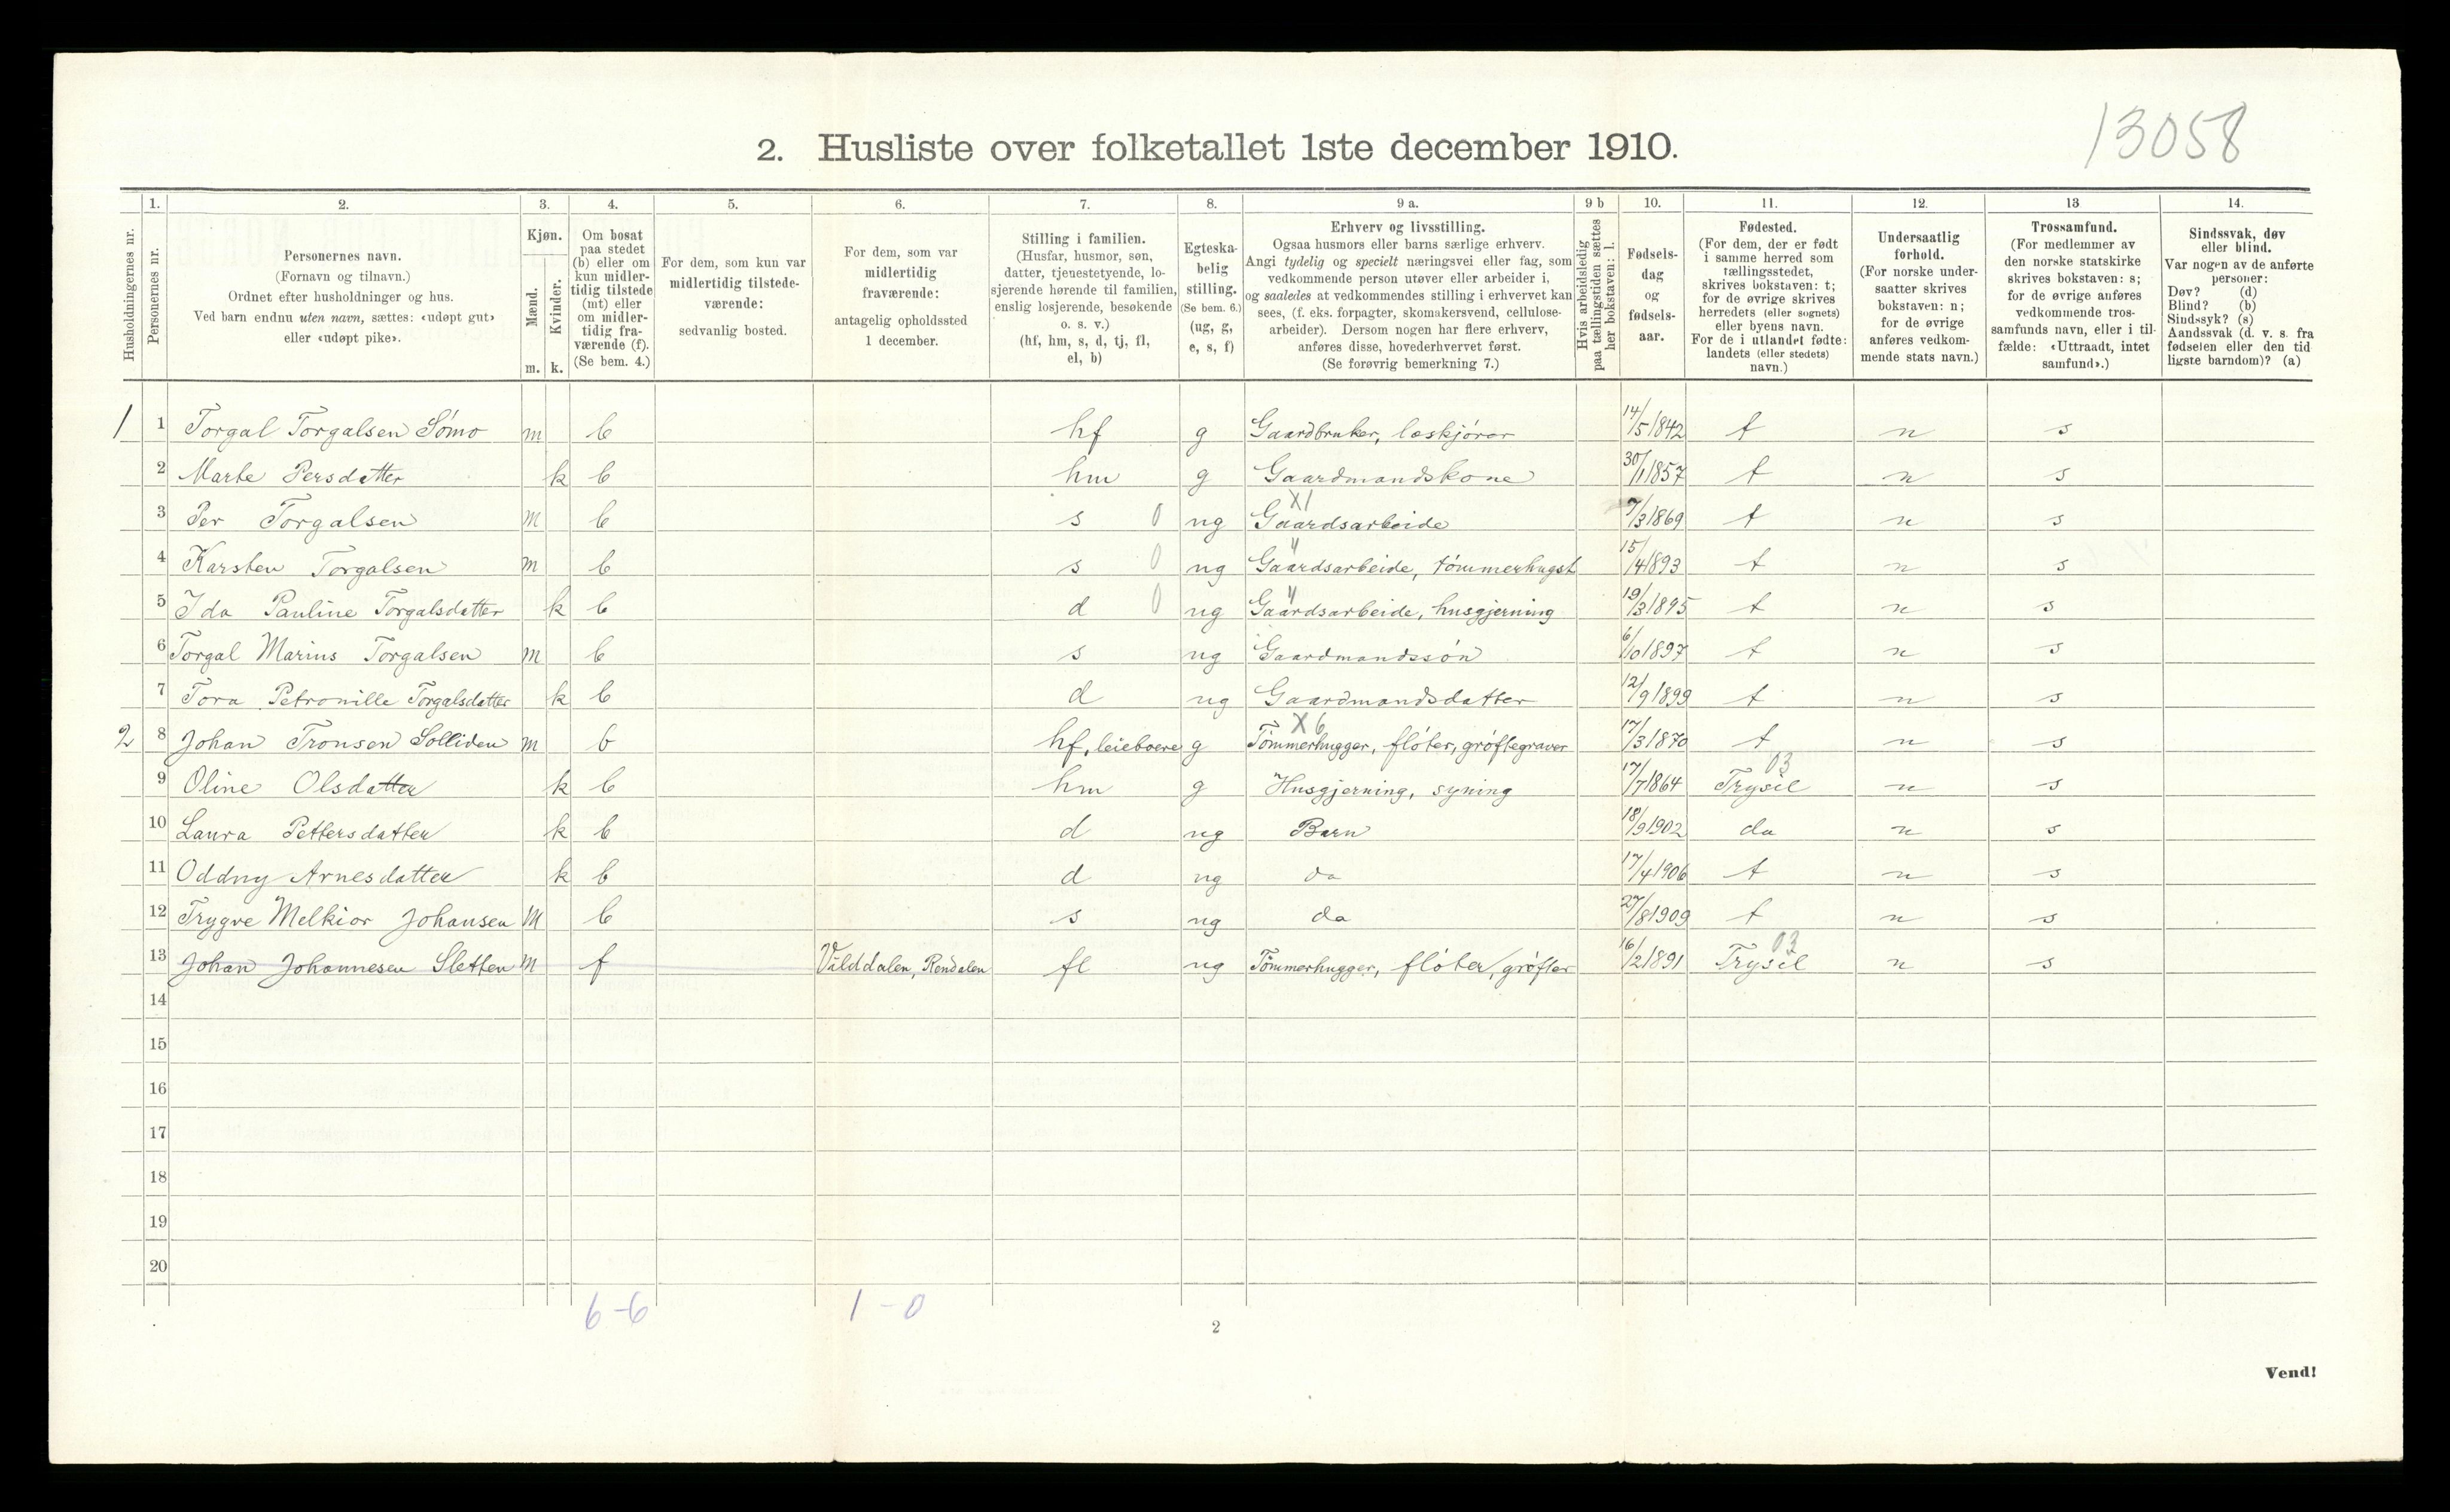 13058
2. Husliste over folketallet 1ste december 1910.
1. 2. 3. 4. 5. 6. 7. 8. 9 a. 9 b 10. 11. 12. 13 14.
Husholdningernes nr.
Personernes nr.
Personernes navn.
(Fornavn og tilnavn.)
Ordnet efter husholdninger og hus.
Ved barn endnu uten navn, sættes: «udøpt gut»
eller «udøpt pike».
Kjøn.
Mænd.
Kvinder.
m. k.
Om bosat
paa stedet
(b) eller om
kun midler-
tidig tilstede
(mt) eller
om midler-
tidig fra-
værende (f).
(Se bem. 4.)
For dem, som kun var
midlertidig tilstede-
værende:
sedvanlig bosted.
For dem, som var
midlertidig
fraværende:
antagelig opholdssted
1 december.
Stilling i familien.
(Husfar, husmor, søn,
datter, tjenestetyende, lo-
sjerende hørende til familien,
enslig losjerende, besøkende
o. s. v.)
(hf, hm, s, d, tj, fl,
el, b)
Egteska-
belig
stilling.
(Se bem. 6.)
(ug, g,
e, s, f)
Erhverv og livsstilling.
Ogsaa husmors eller barns særlige erhverv.
Angi tydelig og specielt næringsvei eller fag, som
vedkommende person utøver eller arbeider i,
og saaledes at vedkommendes stilling i erhvervet kan
sees, (f. eks. forpagter, skomakersvend, cellulose-
arbeider). Dersom nogen har flere erhverv,
anføres disse, hovederhvervet først.
(Se forøvrig bemerkning 7.)
Hvis arbeidsledig
paa tællingstiden sættes
her bokstaven: l.
Fødsels-
dag
og
fødsels-
aar.
Fødested.
(For dem, der er født
i samme herred som
tællingsstedet,
skrives bokstaven: t;
for de øvrige skrives
herredets (eller sognets)
eller byens navn.
For de i utlandet fødte:
landets (eller stedets)
navn.)
Undersaatlig
forhold.
(For norske under-
saatter skrives
bokstaven: n;
for de øvrige
anføres vedkom-
mende stats navn.)
Trossamfund.
(For medlemmer av
den norske statskirke
skrives bokstaven: s;
for de øvrige anføres
vedkommende tros-
samfunds navn, eller i til-
fælde: «Uttraadt, intet
samfund».)
Sindssvak, døv
eller blind.
Var nogen av de anførte
personer:
Døv? (d)
Blind? (b)
Sindssyk? (s)
Aandssvak (d. v. s. fra
fødselen eller den tid
ligste barndom)? (a)
1 1 Torgal Torgalsen Sömo m b hf g Gaardbruker, læskjörer 14/5 1842 t n s
2 Marte Persdatter k b hm g Gaardmandskone 30/1 1857 t n s
X1
3 Per Torgalsen m b s 0 ug Gaardsarbeide 7/3 1869 t n s
4 Karsten Torgalsen m b s 0 ug Gaardsarbeide, tömmerhugst 15/4 1893 t n s
5 Ida Pauline Torgalsdatter k b d 0 ug Gaardsarbeide, husgjerning 19/3 1895 t n s
6 Torgal Marius Torgalsen m b s ug Gaardmandssön 6/10 1897 t n s
7 Tora Petronille Torgalsdatter k b d ug Gaardmandsdatter 12/9 1899 t n s
X6
2 8 Johan Tronsen Solliden m b hf, leieboere g Tömmerhugger, flöter, gröftegraver 17/3 1870 t n s
03
9 Oline Olsdatter k b hm g Husgjerning, syning 17/7 1864 Trysil n s
10 Laura Pettersdatter k b d ug Barn 18/9 1902 da n s
11 Oddny Arnesdatter k b d ug da 17/4 1906 t n s
12 Trygve Melkior Johansen m b s ug da 27/8 1909 t n s
03
13 Johan Johannesen Sletten m f Välddalen, Rendalen fl ug Tömmerhugger, flöter, gröfter 16/2 1891 Trysil n s
14
15
16
17
18
19
20
6-6 1-0
2
Vend!